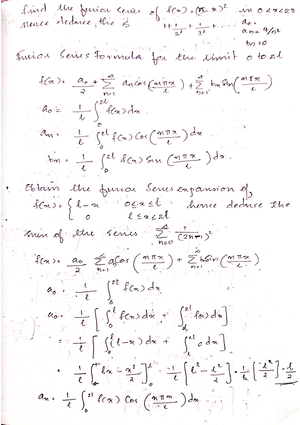 find the furior series of f(x) = (π-x)² in 0<x<2π
Hence deduce, the is 1 + 1/2² + 1/3² + ...
a₀ =
aₙ = 4/n²
bₙ = 0
Furior Series Formula for the limit 0 to 2l
f(x) = a₀/2 + Σ_{n=1}^{∞} aₙ cos(nπx/l) + Σ_{n=1}^{∞} bₙ sin(nπx/l)
a₀ = 1/l ∫₀^{2l} f(x) dx
aₙ = 1/l ∫₀^{2l} f(x) cos(nπx/l) dx
bₙ = 1/l ∫₀^{2l} f(x) sin(nπx/l) dx.
Obtain the furior Series expansion of,
f(x) = { l-x 0≤x≤l hence deduce the
0 l≤x≤2l
sum of the series Σ_{n=0}^{∞} 1/(2n-1)²
f(x) = a₀/2 + Σ_{n=1}^{∞} aₙ cos(nπx/l) + Σ_{n=1}^{∞} bₙ sin(nπx/l)
a₀ = 1/l ∫₀^{2l} f(x) dx
a₀ = 1/l [∫₀^l f(x) dx + ∫_l^{2l} f(x) dx]
= 1/l [∫₀^l (l-x) dx + ∫_l^{2l} 0 dx]
= 1/l [lx - x²/2]₀^l = 1/l [l² - l²/2] = 1/l [l²/2] = l/2
aₙ = 1/l ∫₀^{2l} f(x) cos(nπx/l) dx